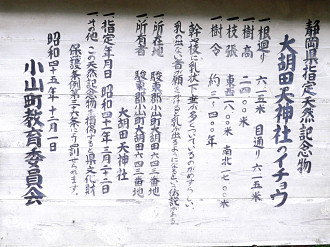 静岡県指定天然記念物
大胡田天神社のイチョウ
一根廻り 六・一五米 目通り 六・一五米
一樹高 二四・〇〇米
一枝張 東西 一八・〇〇米 南北 一七・〇〇米
一樹令 約三〜四〇〇年
一所在地 駿東郡小山町大胡田六四三番地
一所有者 駿東郡小山町大胡田六四三番地
大胡田天神社
一指定年月日 昭和四十一年三月二十二日
一その他 この天然記念物を損傷すると県文化財
保護条例第三六条により罰せられます。
昭和四十五年十二月一日
小山町教育委員会